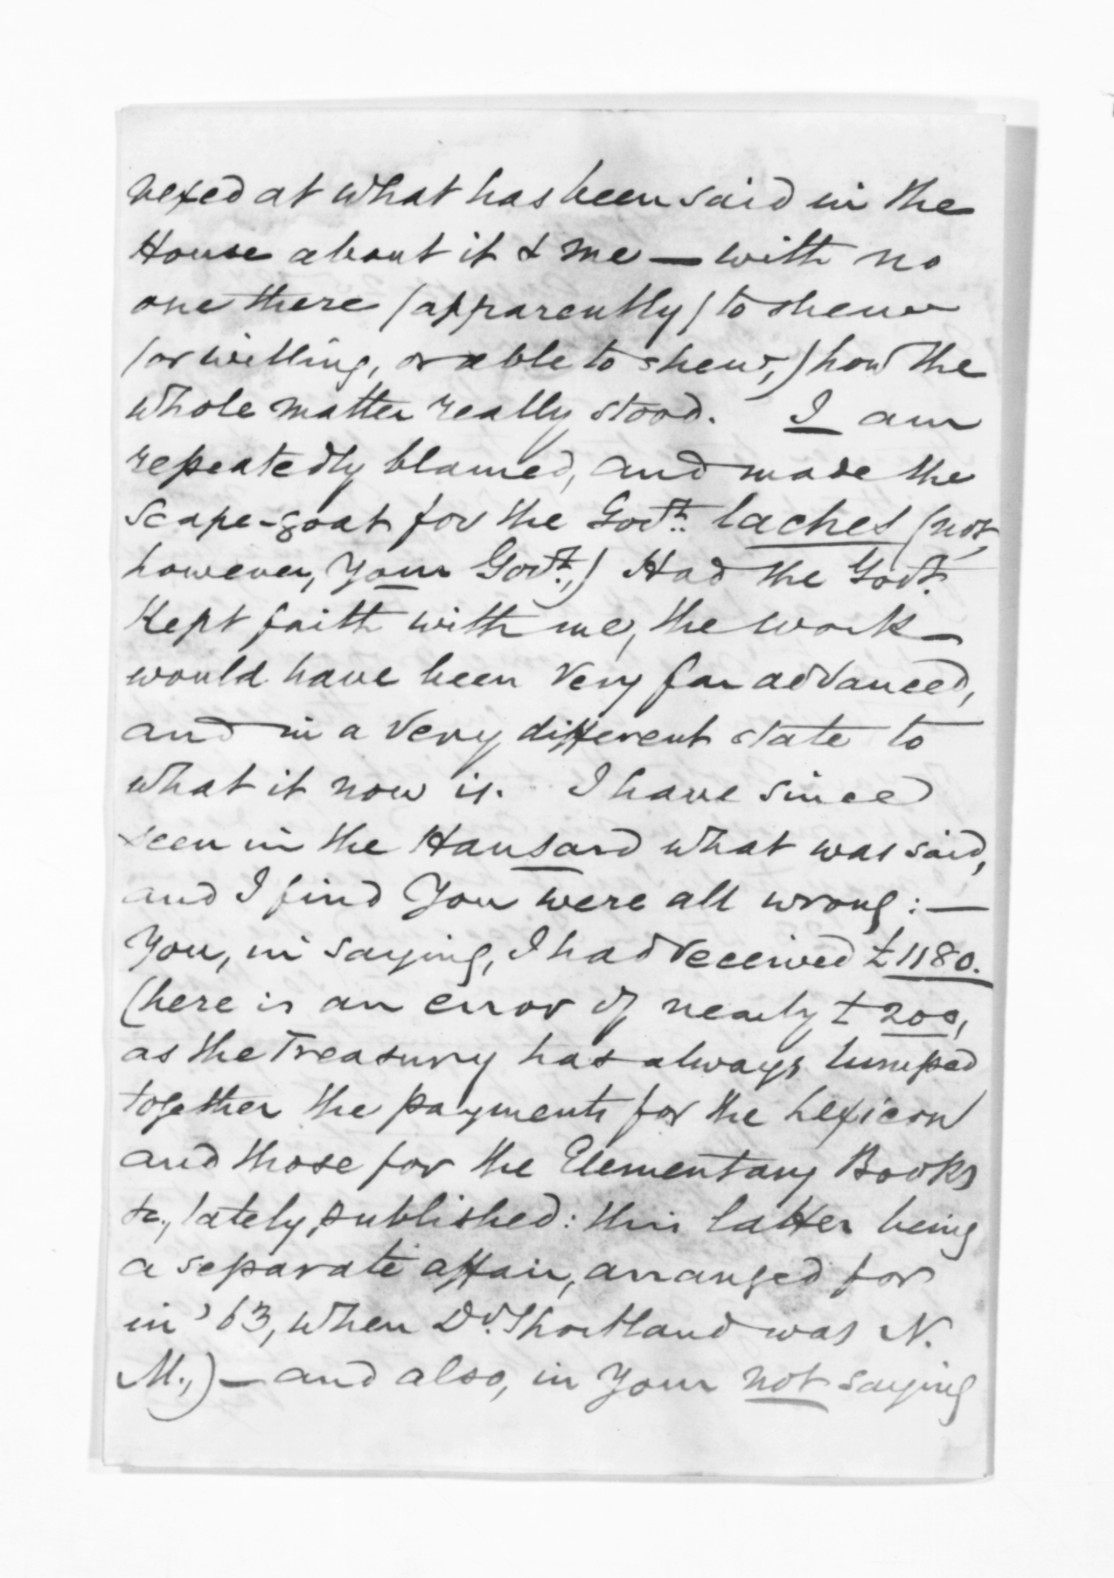 vexed at what has been said in the
House about it & me — with no
one there (apparently) to shew
(or willing, or able to shew,) how the
whole matter really stood. I am
repeatedly blamed, and made the
scape-goat for the Govt. laches (not,
however, your Govt.,) Had the Govt.
kept faith with me, the work
would have been very far advanced,
and in a very different state to
what it now is. I have since
seen in the Hansard what was said,
and I find You were all wrong:—
You, in saying, I had received £1180.
(here is an error of nearly £200,
as the Treasury has always lumped
together the payments for the Lexicon
and those for the Elementary Books
&c., lately published: this latter being
a separate affair, arranged for
in '63, when Dr. Shortland was N.
M.,) — and also, in your not saying